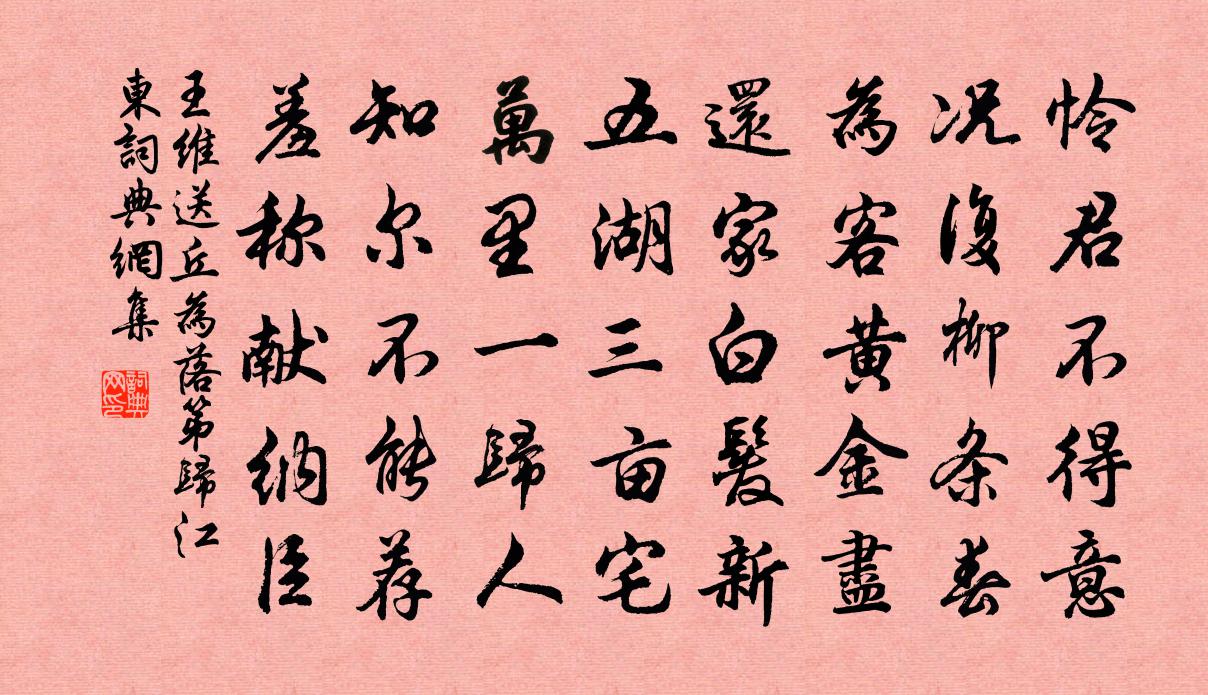 怜君不得意
况復柳条春
為客黃金盡
還家白髮新
五湖三亩宅
萬里一歸人
知尔不能荐
羞称献納臣
王維送丘為落第歸江
東詞典網集
詞典网印